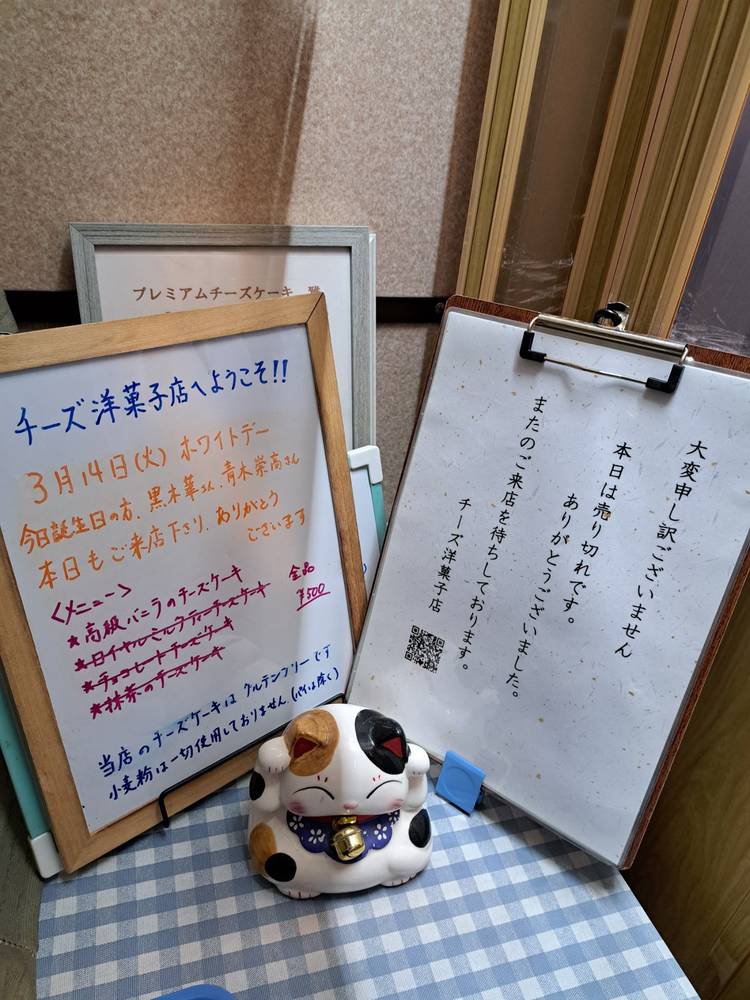 プレミアムチーズケーキ
チーズ洋菓子店へようこそ!!
3月14日(火) ホワイトデー
今日誕生日の方、黒木華さん、青木崇高さん
本日もご来店下さり、ありがとう
ございます
<メニュー>
★高級バニラのチーズケーキ
全品
¥500
★ロイヤルミルクティーチーズケーキ
★チョコレートチーズケーキ
★抹茶のチーズケーキ
当店のチーズケーキは グルテンフリーです
小麦粉は一切使用しておりません。(パイは除く)
大変申し訳ございません
本日は売り切れです。
ありがとうございました。
またのご来店を待ちしております。
チーズ洋菓子店